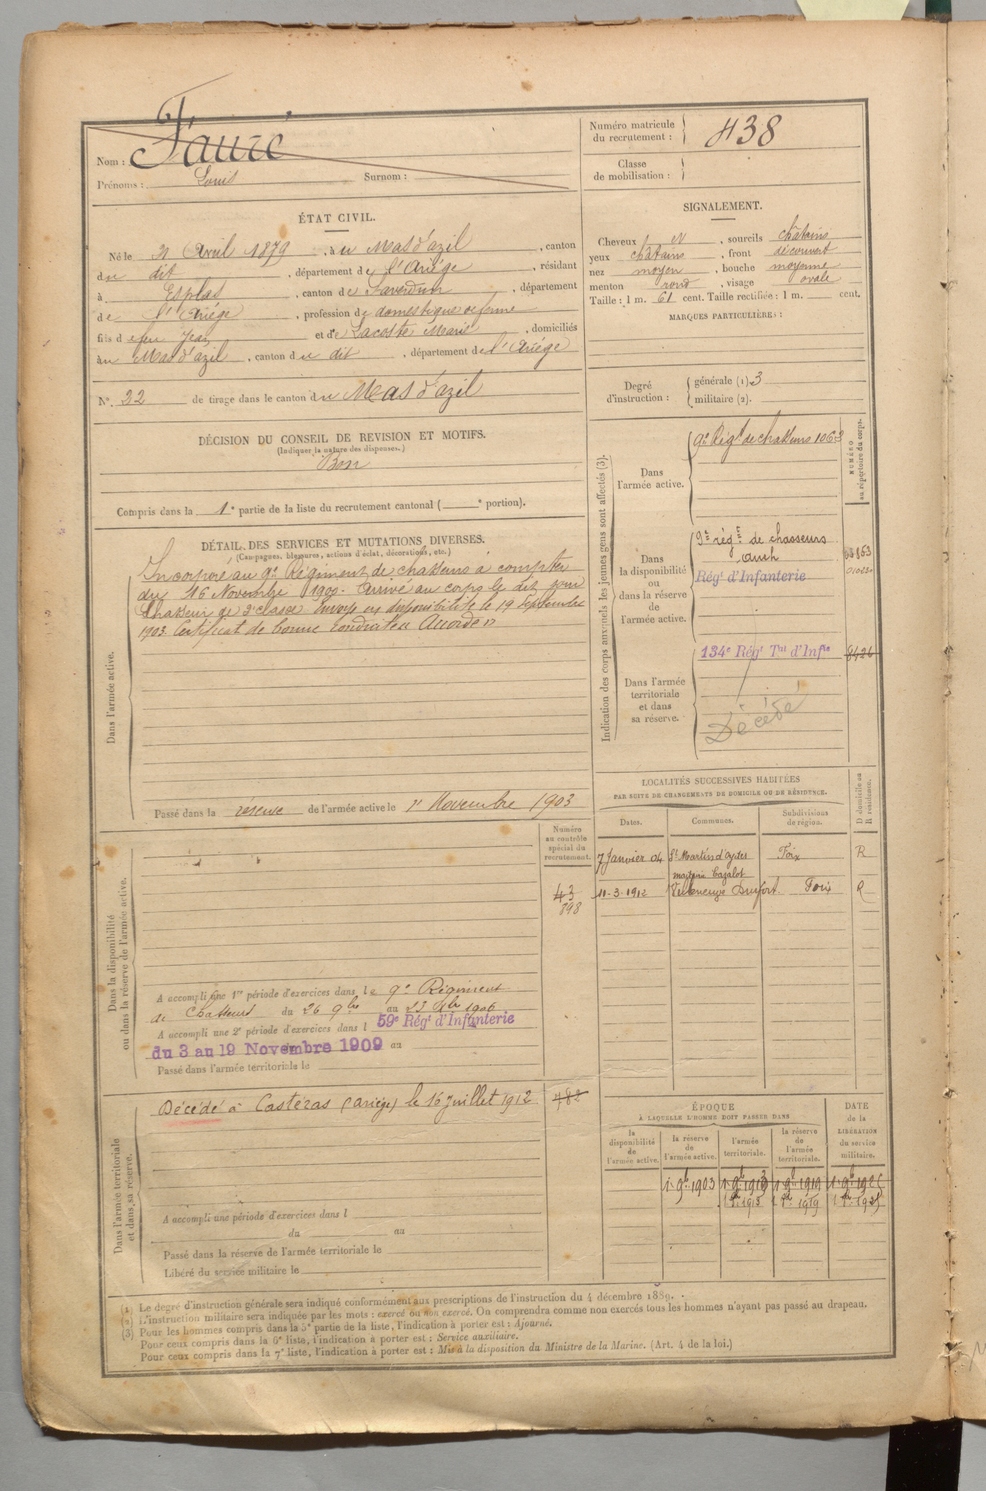 Nom : Fauré
Prénoms : Louis Surnom :
Numéro matricule du recrutement : 438
Classe de mobilisation :
ÉTAT CIVIL.
Né le Avril 1879, à u Mas d'azil, canton
du dit, département de l'Ariège, résidant
à Esplas, canton de Saverdun, département
de l'Ariège, profession de domestique de ferme
fils de feu Jean et de Lacoste Marie, domiciliés
au Mas d'azil, canton du dit, département de l'Ariège
N° 22 de tirage dans le canton du Mas d'azil
SIGNALEMENT.
Cheveux N, sourcils châtains
yeux châtains, front découvert
nez moyen, bouche moyenne
menton rond, visage ovale
Taille : 1 m. 61 cent. Taille rectifiée : 1 m. cent.
MARQUES PARTICULIÈRES :
Degré d'instruction : générale (1) 3
militaire (2).
DÉCISION DU CONSEIL DE REVISION ET MOTIFS.
(Indiquer la nature des dispenses.)
Bon
Compris dans la 1e partie de la liste du recrutement cantonal ( e portion).
DÉTAIL DES SERVICES ET MUTATIONS DIVERSES.
(Campagnes, blessures, actions d'éclat, décorations, etc.)
Dans l'armée active.
Incorporé au 9e Régiment de chasseurs à compter
du 16 Novembre 1900. Arrivé au corps le dit jour
Chasseur de 2e classe Envoyé en disponibilité le 19 Septembre
1903. Certificat de bonne conduite Accordé
Passé dans la réserve de l'armée active le 1er Novembre 1903
Indication des corps auxquels les jeunes gens sont affectés (3).
NUMÉRO au répertoire du corps.
Dans l'armée active.
9e Régt de chasseurs 1063
Dans la disponibilité ou dans la réserve de l'armée active.
9e régt de chasseurs
Auch
Régt d'Infanterie
Dans l'armée territoriale et dans sa réserve.
134e Régt Tal d'Infie 8426
Décédé
LOCALITÉS SUCCESSIVES HABITÉES
PAR SUITE DE CHANGEMENTS DE DOMICILE OU DE RÉSIDENCE.
Dates. Communes. Subdivisions de région. D domicile ou R résidence.
7 Janvier 04 St Martin d'Oydes Foix R
maison Cazalot
11-3-1912 Durfort Foix R
Dans la disponibilité ou dans la réserve de l'armée active.
Numéro au contrôle spécial du recrutement.
43
898
A accompli une 1re période d'exercices dans le 9e Régiment
de Chasseurs du 26 9bre au 23 Xbre 1906
A accompli une 2e période d'exercices dans l 59e Régt d'Infanterie
du 3 au 19 Novembre 1909 au
Passé dans l'armée territoriale le
Dans l'armée territoriale et dans sa réserve.
Décédé à Castéras (Ariège) le 16 juillet 1912 482
A accompli une période d'exercices dans l
du au
Passé dans la réserve de l'armée territoriale le
Libéré du service militaire le
ÉPOQUE
À LAQUELLE L'HOMME DOIT PASSER DANS
DATE de la LIBÉRATION du service militaire.
la disponibilité de l'armée active. la réserve de l'armée active. l'armée territoriale. la réserve de l'armée territoriale.
1er 9bre 1903 1er 9bre 1913 1er 9bre 1919 1er 9bre 1925
1913 1919
(1) Le degré d'instruction générale sera indiqué conformément aux prescriptions de l'instruction du 4 décembre 1889.
(2) L'instruction militaire sera indiquée par les mots : exercé ou non exercé. On comprendra comme non exercés tous les hommes n'ayant pas passé au drapeau.
(3) Pour les hommes compris dans la 5e partie de la liste, l'indication à porter est : Ajourné.
Pour ceux compris dans la 6e liste, l'indication à porter est : Service auxiliaire.
Pour ceux compris dans la 7e liste, l'indication à porter est : Mis à la disposition du Ministre de la Marine. (Art. 4 de la loi.)